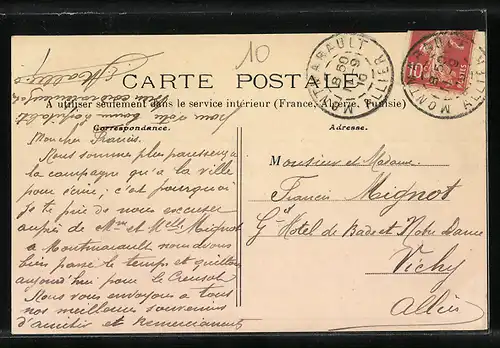 10
CARTE POSTALE
A utiliser seulement dans le service intérieur (France, Algérie, Tunisie)
Correspondance.
Adresse.
MONTMARAULT
ALLIER
MONTMARAULT
ALLIER
10
Mon cher Francis.
Nous sommes plus paresseux à
la campagne qu'à la ville
pour écrire; c'est pourquoi
je te prie de nous excuser
auprès de Mme et Melle Mignot
a Montmarault nous avons
bien passé le temps et quittons
aujourd'hui pour le Creusot
Nous vous envoyons à tous
nos meilleurs souvenirs
d'amitiés et Remerciements
Monsieur et Madame
Francis Mignot
Gd Hôtel de Bade et Notre Dame
Vichy
Allier